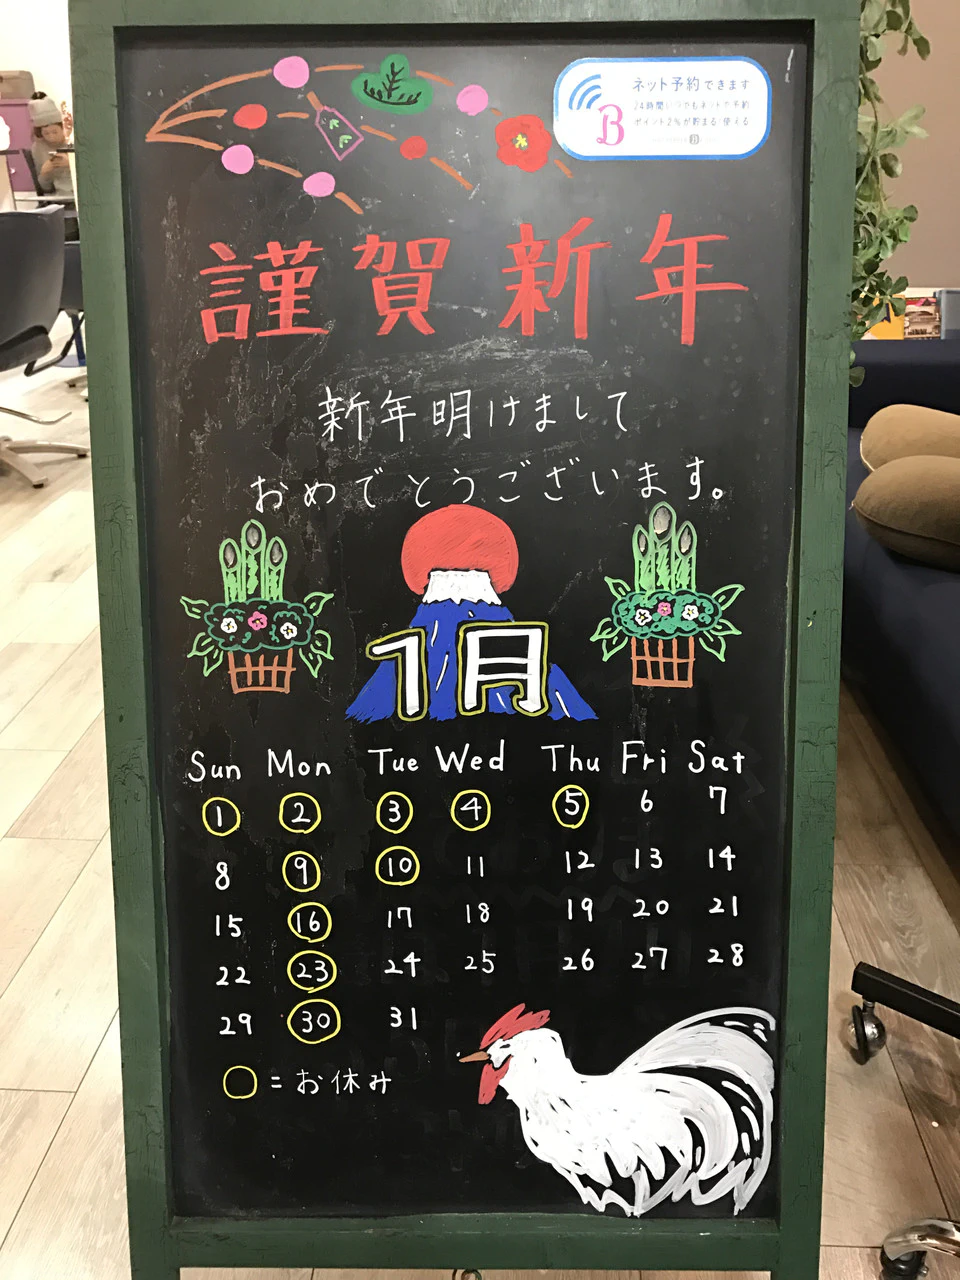 ネット予約できます
24時間いつでもネットで予約
ポイント2%が貯まる・使える
B
謹賀新年
新年明けまして
おめでとうございます。
1月
Sun Mon Tue Wed Thu Fri Sat
1 2 3 4 5 6 7
8 9 10 11 12 13 14
15 16 17 18 19 20 21
22 23 24 25 26 27 28
29 30 31
= お休み